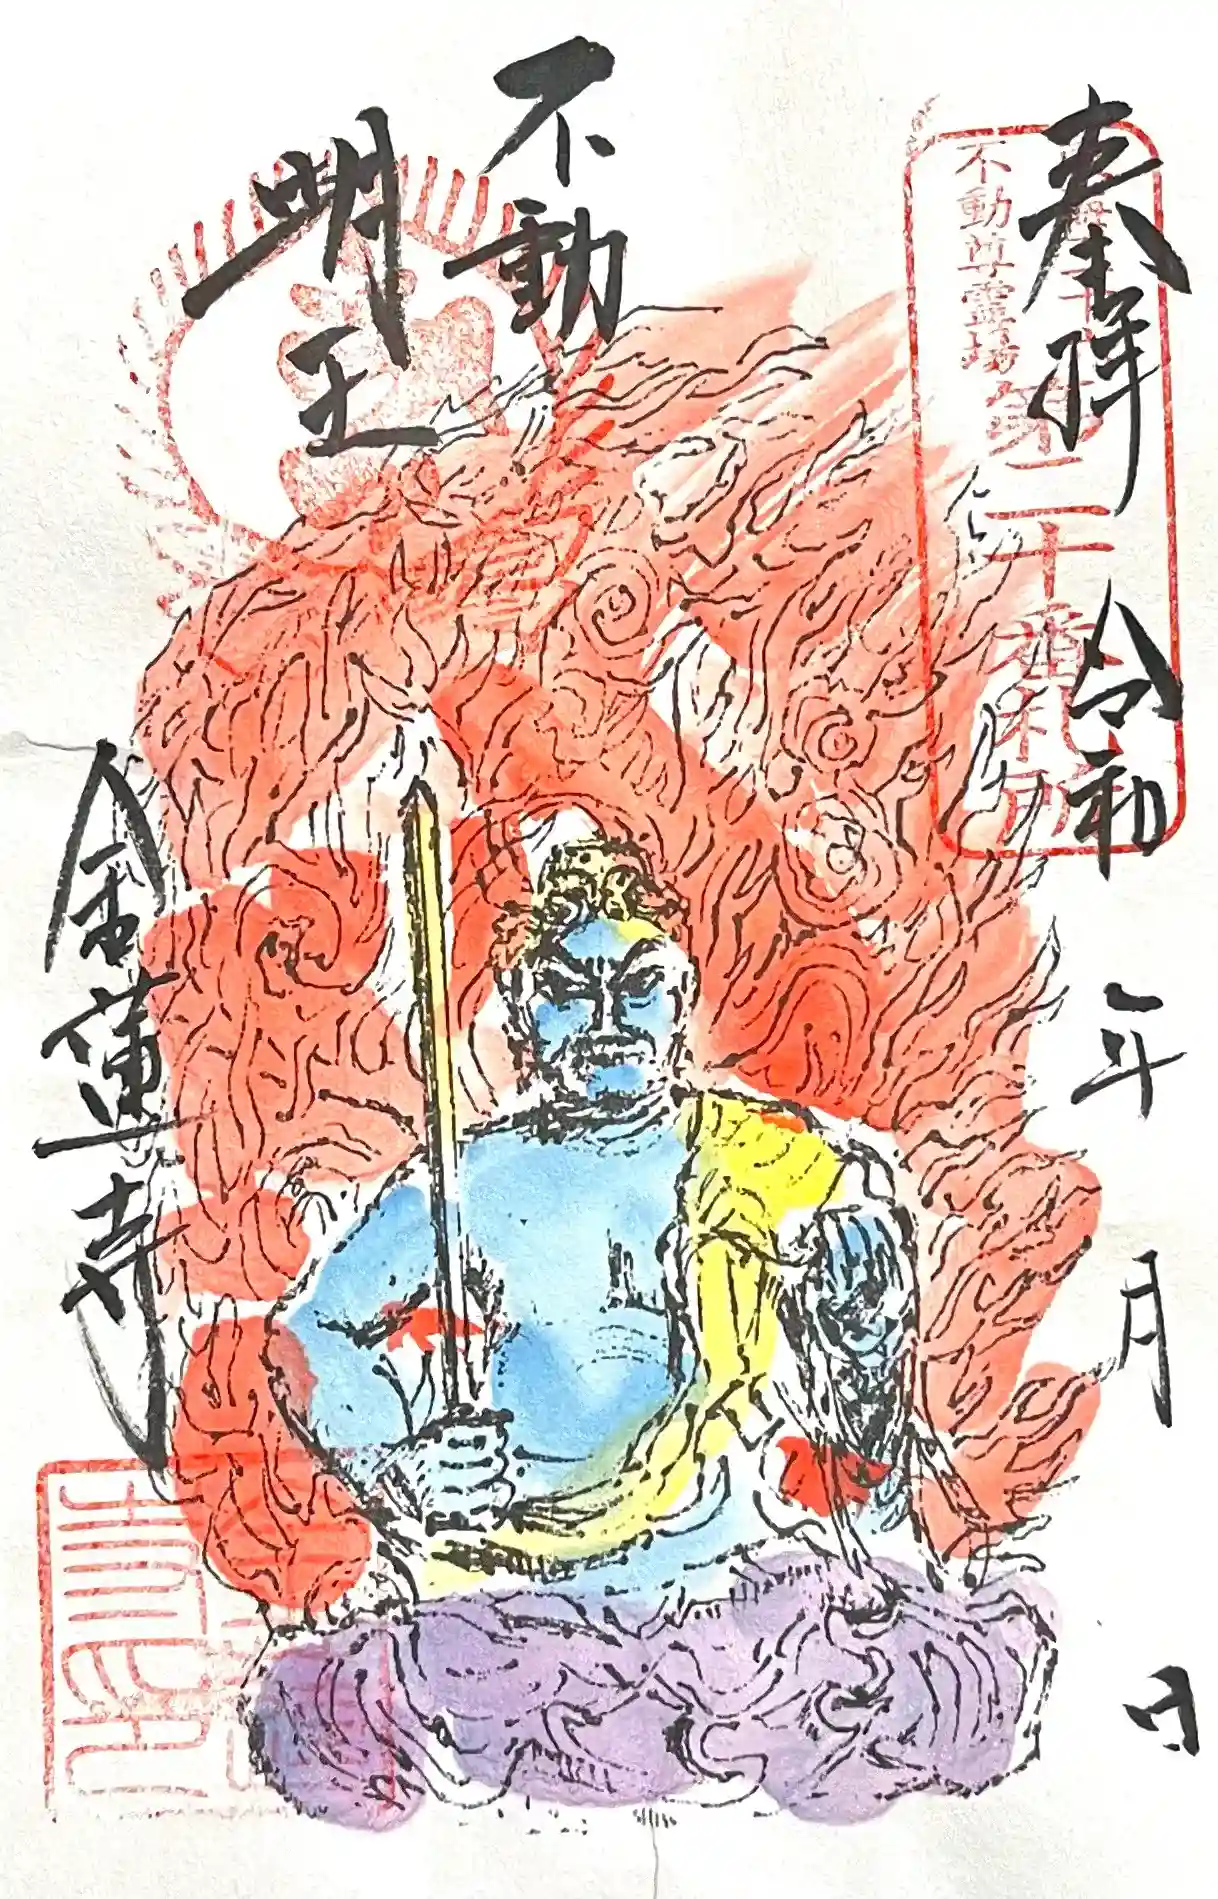 奉拝 令和 年 月 日
不動尊霊場
第二十番札所
不動
明王
金蓮寺